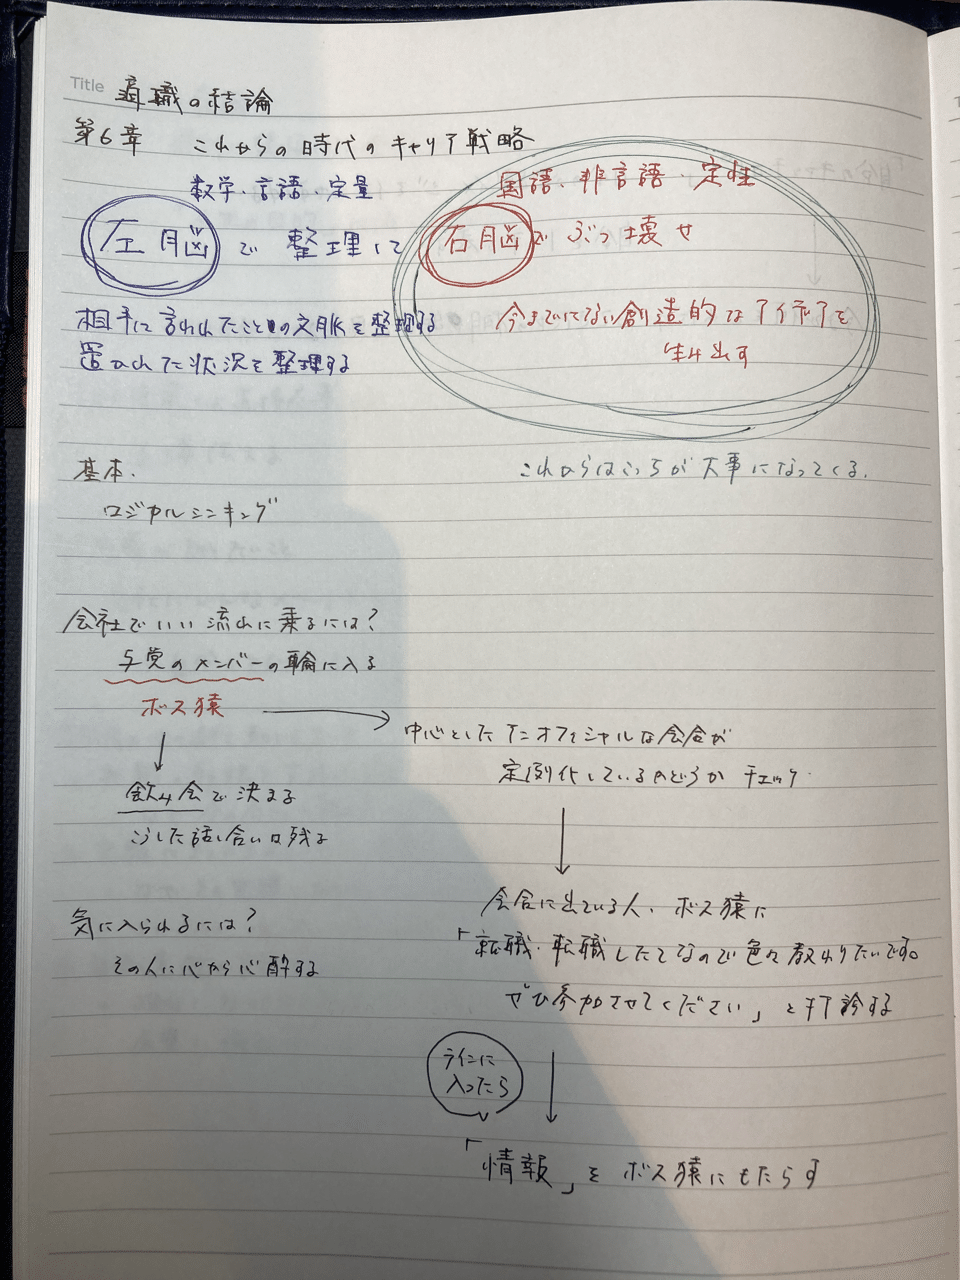 Title 適職の結論
第6章 これからの時代のキャリア戦略
数学・言語・定量
左脳で整理して
相手に言われたことの文脈を整理する
置かれた状況を整理する
国語・非言語・定性
右脳でぶっ壊せ
今までにない創造的なアイデアを
生み出す
これからはこっちが大事になってくる。
基本.
ロジカルシンキング
会社でいい流れに乗るには?
与党のメンバーの輪に入る
ボス猿
飲み会で決まる
こうした話し合いは残る
中心としたアンオフィシャルな会合が
定例化しているのどうか チェック
会合に出ている人、ボス猿に
「転職・転職したてなので色々教わりたいです。
ぜひ参加させてください」と打診する
ラインに
入ったら
「情報」をボス猿にもたらす
気に入られるには?
その人に心から心酔する